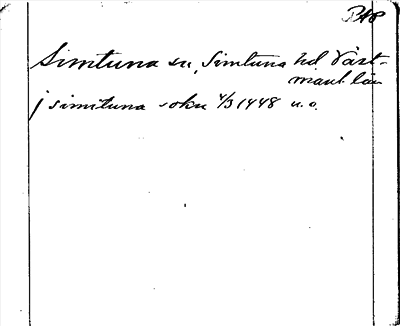 Simtuna sn, Simtuna hd Väst-
manl. län
j simtuna sokn 4/3 1448 u. o.